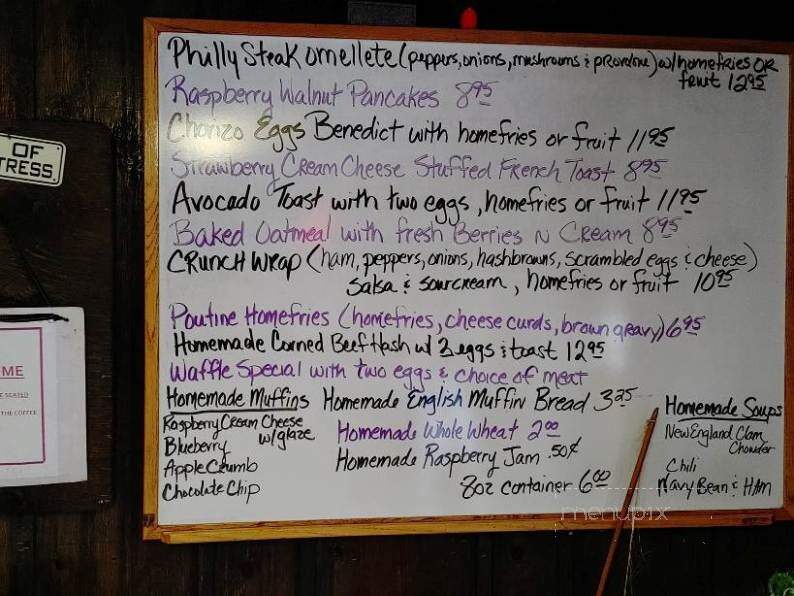 Philly Steak omellete (peppers, onions, mushrooms & provolone) w/ homefries OR
fruit 12 95
Raspberry Walnut Pancakes 8 95
Chorizo Eggs Benedict with homefries or fruit 11 95
Strawberry Cream Cheese Stuffed French Toast 8 95
Avocado Toast with two eggs, homefries or fruit 11 95
Baked Oatmeal with fresh Berries N Cream 8 95
CRUNCH WRAP (ham, peppers, onions, hashbrowns, scrambled eggs & cheese)
salsa & sourcream, homefries or fruit 10 95
Poutine Homefries (homefries, cheese curds, brown gravy) 6 95
Homemade Corned Beef Hash w/ 2 eggs & toast 12 95
Waffle Special with two eggs & choice of meat
Homemade Muffins
Raspberry Cream Cheese
w/glaze
Blueberry
Apple Crumb
Chocolate Chip
Homemade English Muffin Bread 3 25
Homemade Whole Wheat 2 00
Homemade Raspberry Jam .50¢
8oz container 6 00
Homemade Soups
New England Clam
Chowder
Chili
Navy Bean & HAM
OF
TRESS
ME
E SEATED
THE COFFEE
menupix